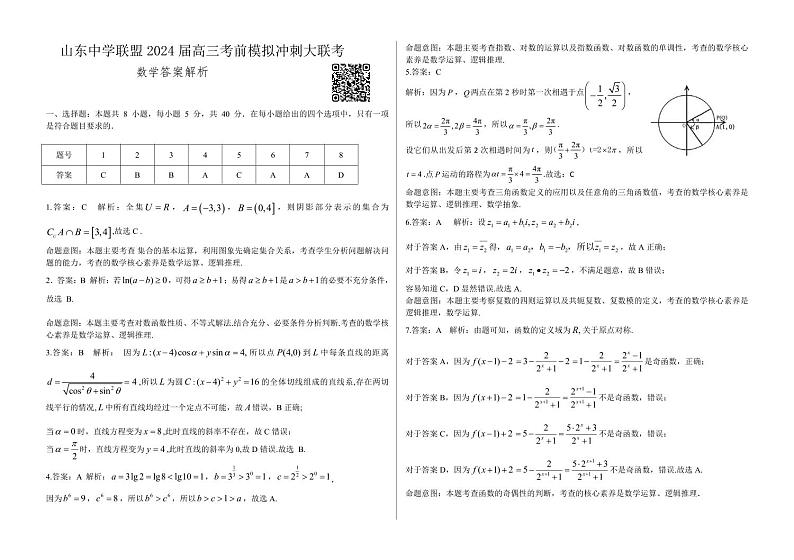 山东中学联盟 2024 届高三考前模拟冲刺大联考
数学答案解析
一、选择题：本题共 8 小题，每小题 5 分，共 40 分．在每小题给出的四个选项中，只有一项
是符合题目要求的．
题号 1 2 3 4 5 6 7 8
答案 C B B A C A A D
1.答案：C 解析：全集 U = R ，A = (−3,3)，B = (0,4]，则阴影部分表示的集合为
C_U A ∩ B = [3,4],故选 C．
命题意图：本题主要考查 集合的基本运算，利用图象先确定集合关系，考查学生分析问题解决问
题的能力，考查的数学核心素养是数学运算、逻辑推理.
2．答案：B 解析：若 ln(a−b) ≥ 0，可得 a ≥ b+1；易得 a ≥ b+1 是 a > b+1 的必要不充分条件，
故选 B.
命题意图：本题主要考查对数函数性质、不等式解法.结合充分、必要条件分析判断.考查的数学核
心素养是数学运算、逻辑推理.
3.答案：B 解析： 因为 L : (x−4)cosα + y sinα = 4, 所以点 P(4,0) 到 L 中每条直线的距离
d = 4/√(cos²θ + sin²θ) = 4 ,所以 L 为圆 C : (x−4)² + y² = 16 的全体切线组成的直线系,存在两切
线平行的情况, L 中所有直线均经过一个定点不可能，故 A 错误，B 正确;
当 α = 0 时，直线方程变为 x = 8 ,此时直线的斜率不存在，故 C 错误；
当 α = π/2 时，直线方程变为 y = 4 ,此时直线的斜率为 0,故 D 错误.故选 B.
4.答案：A 解析：a = 3lg2 = lg8 < lg10 = 1，b = 3^(1/3) > 3⁰ = 1，c = 2^(1/2) > 2⁰ = 1，
因为 b⁶ = 9 ，c⁶ = 8，所以 b⁶ > c⁶，所以 b > c > 1 > a，故选 A.
命题意图：本题主要考查指数、对数的运算以及指数函数、对数函数的单调性，考查的数学核心
素养是数学运算、逻辑推理.
5.答案：C
解析：因为 P ，Q 两点在第 2 秒时第一次相遇于点 (−1/2, √3/2)，
所以 2α = 2π/3, 2β = 4π/3，所以 α = π/3, β = 2π/3.
设它们从出发后第 2 次相遇时间为 t ，则 (π/3 + 2π/3) t=2×2π，所以
t = 4 .点 P 运动的路程为 αt = π/3 × 4 = 4π/3 .故选：C
P(Q)
A(1,0)
α
β
命题意图：本题主要考查三角函数定义的应用以及任意角的三角函数值，考查的数学核心素养是
数学运算、逻辑推理、数学抽象.
6.答案：A 解析：设 z₁ = a₁ + b₁i, z₂ = a₂ + b₂i ,
对于答案 A，由 z₁ = z̄₂ 得，a₁ = a₂，b₁ = −b₂，所以 z̄₁ = z₂，故 A 正确；
对于答案 B，令 z₁ = i，z₂ = 2i，z₁ • z₂ = −2，不满足题意，故 B 错误；
容易知道 C，D 显然错误.故选 A.
命题意图：本题主要考察复数的四则运算以及共轭复数、复数模的定义，考查的数学核心素养是
逻辑推理，数学运算.
7.答案：A 解析：由题可知，函数的定义域为 R, 关于原点对称.
对于答案 A，因为 f(x−1)−2 = 3 − 2/(2^x+1) − 2 = 1 − 2/(2^x+1) = (2^x−1)/(2^x+1) 是奇函数，正确；
对于答案 B，因为 f(x+1)−2 = 1 − 2/(2^(x+1)+1) = (2^(x+1)−1)/(2^(x+1)+1) 不是奇函数，错误；
对于答案 C，因为 f(x−1)+2 = 5 − 2/(2^x+1) = (5·2^x+3)/(2^x+1) 不是奇函数，错误；
对于答案 D，因为 f(x+1)+2 = 5 − 2/(2^(x+1)+1) = (5·2^(x+1)+3)/(2^(x+1)+1) 不是奇函数，错误.故选 A.
命题意图：本题考查函数的奇偶性的判断，考查的核心素养是数学运算、逻辑推理．